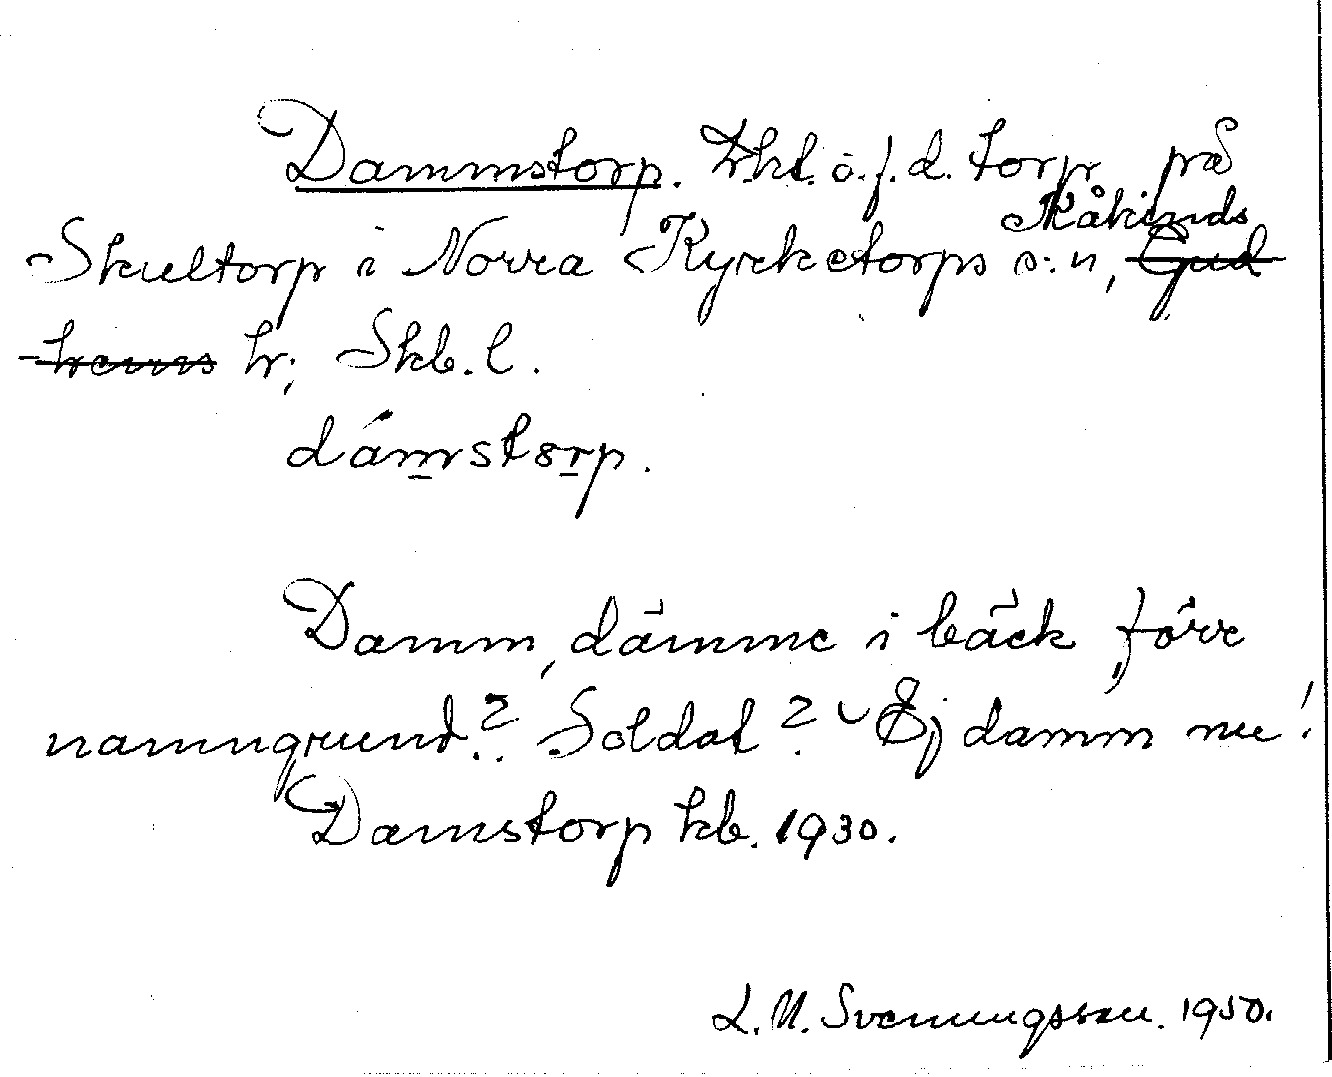 Dammstorp. Trkt. o. f. d. torp på
Skultorp i Norra Kyrketorps s:n, Kåkinds ~~Gud~~
~~hems~~ hr; Skb. l.
dámstorp.
Damm, dämme i bäck, förr
namngrund? Soldat? Ej damm nu!
Damstorp kb. 1930.
L. M. Svenungsson. 1950.